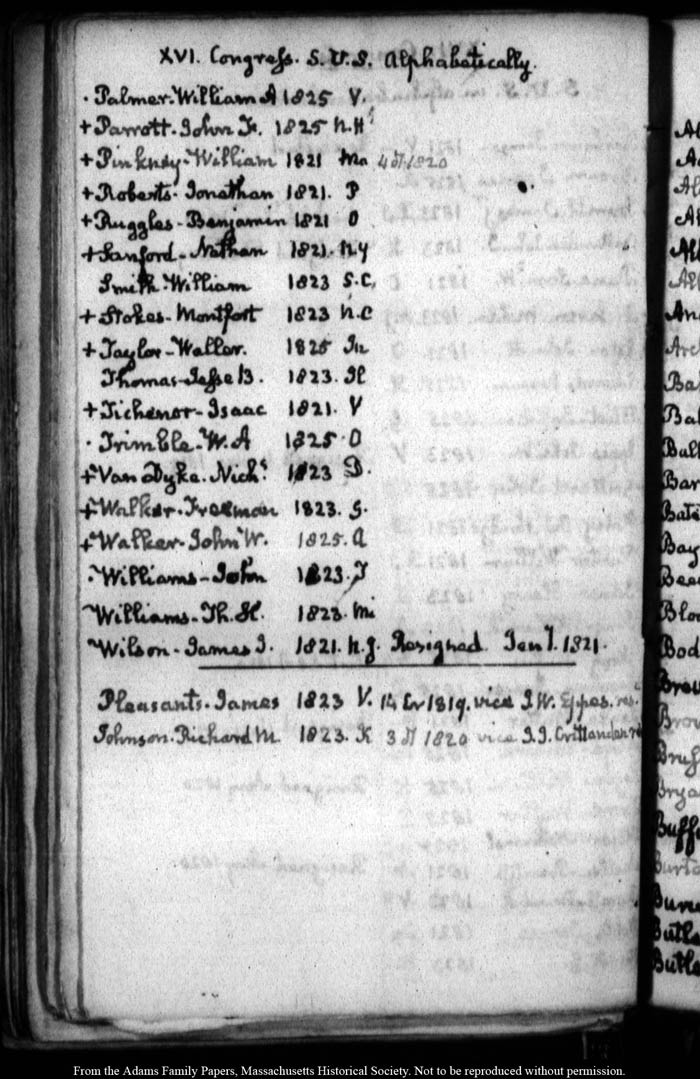 XVI. Congress. S.U.S. Alphabetically.
· Palmer. William A 1825 V.
+ Parrott. John F. 1825 N.H
+ Pinkney. William 1821 Ma 4 1820
+ Roberts. Jonathan 1821. P
+ Ruggles. Benjamin 1821 O
+ Sanford. Nathan 1821. N.Y
Smith. William 1823 S.C.
+ Stokes. Montfort 1823 N.C
+ Taylor. Waller. 1825 In
Thomas. Jesse B. 1823. Il
+ Tichenor. Isaac 1821. V
· Trimble. W. A 1825. O
+ Van Dyke. Nich.s 1823 D.
+ Walker. Freeman 1823. G.
+ Walker. John W. 1825. A
· Williams. John 1823. T
Williams. Th. H. 1823. Mi
Wilson. James J. 1821. N.J. Resigned Jan 1821.
Pleasants. James 1823 V. 14 1819. vice J. W. Eppes. res
Johnson. Richard M 1823. K 3 1820 vice J. J. Crittenden
Al
Al
All
All
An
Arc
Ba
Bal
Bal
Bar
Bate
Bay
Bee
Blo
Bod
Bre
Bro
Bru
Brya
Buff
Burto
Butle
Butle
From the Adams Family Papers, Massachusetts Historical Society. Not to be reproduced without permission.